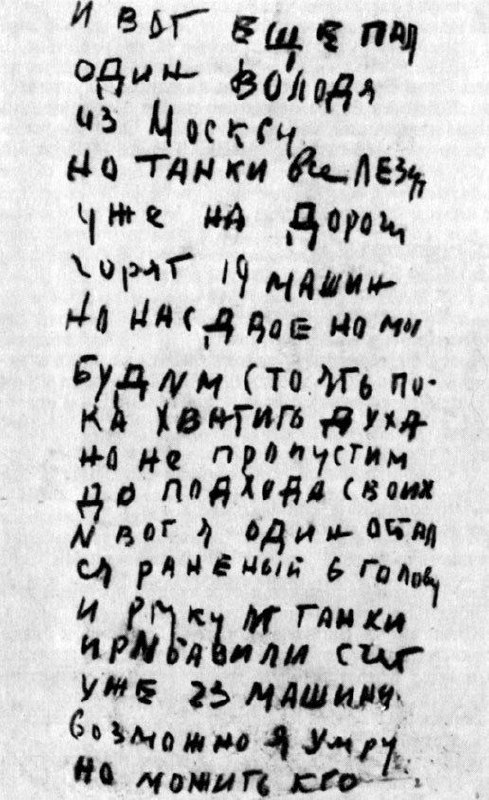 И ВОТ ЕЩЕ ПАЛ
ОДИН ВОЛОДЯ
ИЗ МОСКВЫ
НО ТАНКИ ВСЕ ЛЕЗУТ
УЖЕ НА ДОРОГИ
ГОРЯТ 19 МАШИН
НО НАС ДВОЕ НО МЫ
БУДИМ СТОЯТЬ ПО-
КА ХВАТИТЬ ДУХА
НО НЕ ПРОПУСТИМ
ДО ПОДХОДА СВОИХ
И ВОТ Я ОДИН ОСТАЛ
СЯ РАНЕНЫЙ В ГОЛОВУ
И РУКУ И ТАНКИ
ПРИБАВИЛИ СЧЕТ
УЖЕ 23 МАШИНЫ
ВОЗМОЖНО Я УМРУ
НО МОЖИТЬ КТО